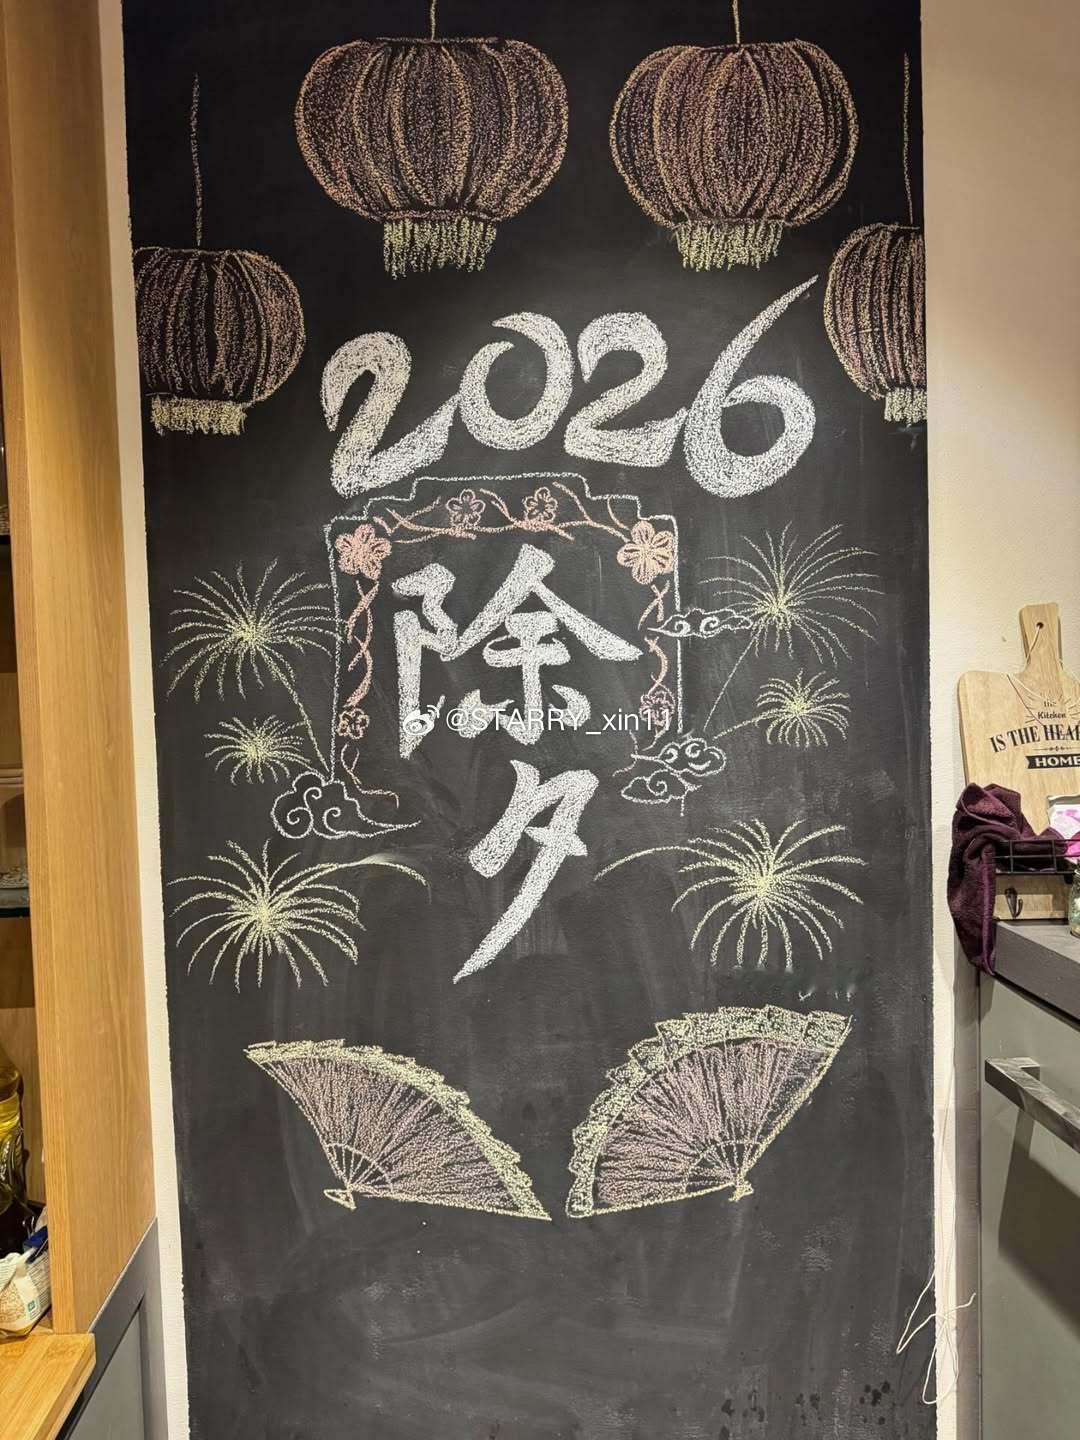 2026
除
@STARRY_xin11
夕
the
Kitchen
IS THE HEA
HOME